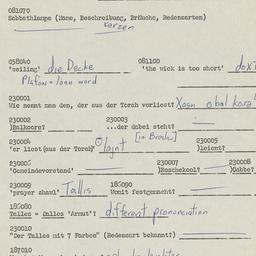 081070
Sabbathlampe (Name, Beschreibung, Bräuche, Redensarten)
kerzen
058040 081100
'ceiling' die Decke 'the wick is too short'
Plafon = loan word
230001
Wie nennt man den, der aus der Torah vorliest?
230002 230003
]Balkoore? ...der dabei steht?
230004 [in Brocho] 230005
'er liest(aus der Torah)' lajnt ]leient?
230006 230007 230008
'Gemeindevorstand' ]Roschekool? ]Gabbe?
230009 186090
'prayer shawl' Tallis Womit festgemacht?
186080
Talles = Dalles 'Armut'? different pronunciation
230010
"Der Tallis mit 7 Farben" (Redensart bekannt?)
187010